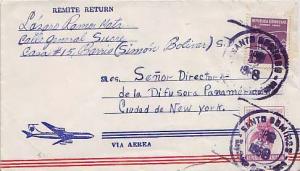 REMITE RETURN
Lázaro Ramos Mota
Calle General Sucre
Casa #15, Barrio (Simón Bolívar) S.
Sres. Señor Director
de la Difusora Panaméric
Ciudad de New york.
VIA AEREA
SANTO DOMINGO
SANTO DOMINGO